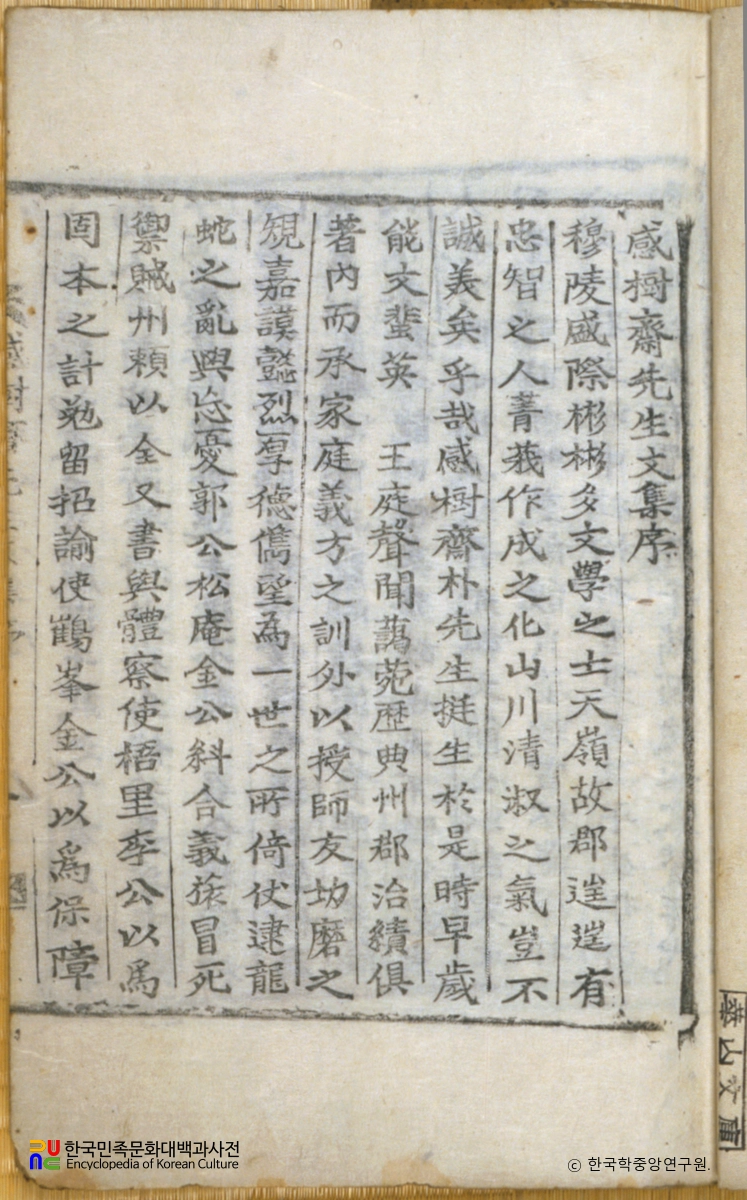 感樹齋先生文集序
穆陵盛際彬彬多文學之士天嶺故郡達達有
忠智之人菁莪作成之化山川淸淑之氣豈不
誠義矣乎哉感樹齋朴先生挺生於是時早歲
能文蜚英 王庭聲聞藹菀歷典州郡治績俱
著內而承家庭義方之訓外以授師友切磨之
規嘉謨懿烈厚德儁望爲一世之所倚仗逮龍
蛇之亂與忘憂郭公松庵金公糾合義旅冒死
禦賊州賴以全又書與體察使梧里李公以爲
固本之計勉留招諭使鶴峯金公以爲保障
華山文庫
한국민족문화대백과사전
Encyclopedia of Korean Culture
© 한국학중앙연구원.